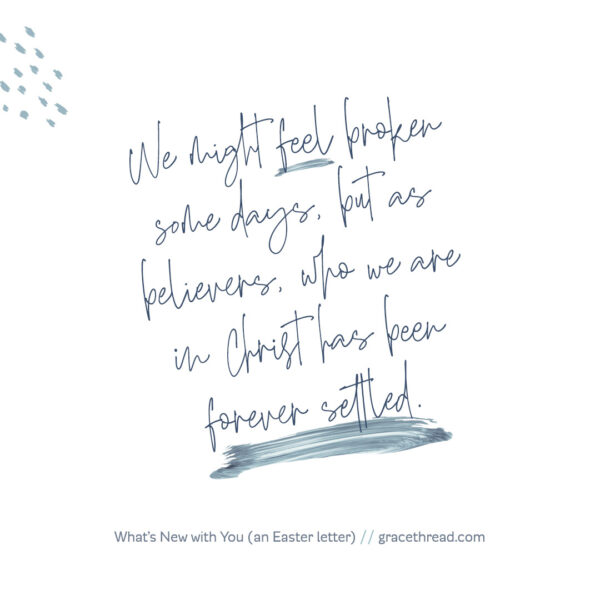 We might feel broken
some days, but as
believers, who we are
in Christ has been
forever settled.
What's New with You (an Easter letter) // gracethread.com